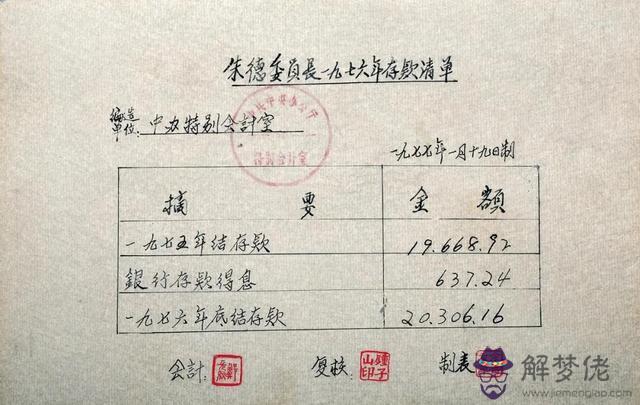 朱德委員長一九七六年存款清单
編造
单位:中办特别会計室
特别会計室
一九七七年一月十九日制
摘要 金額
一九七五年结存款 19.668.92
銀行存款得息 637.24
一九七六年底结存款 20.306.16
会計: 复核: 鍾子山印 制表
解梦佬
www.jiemenglao.com